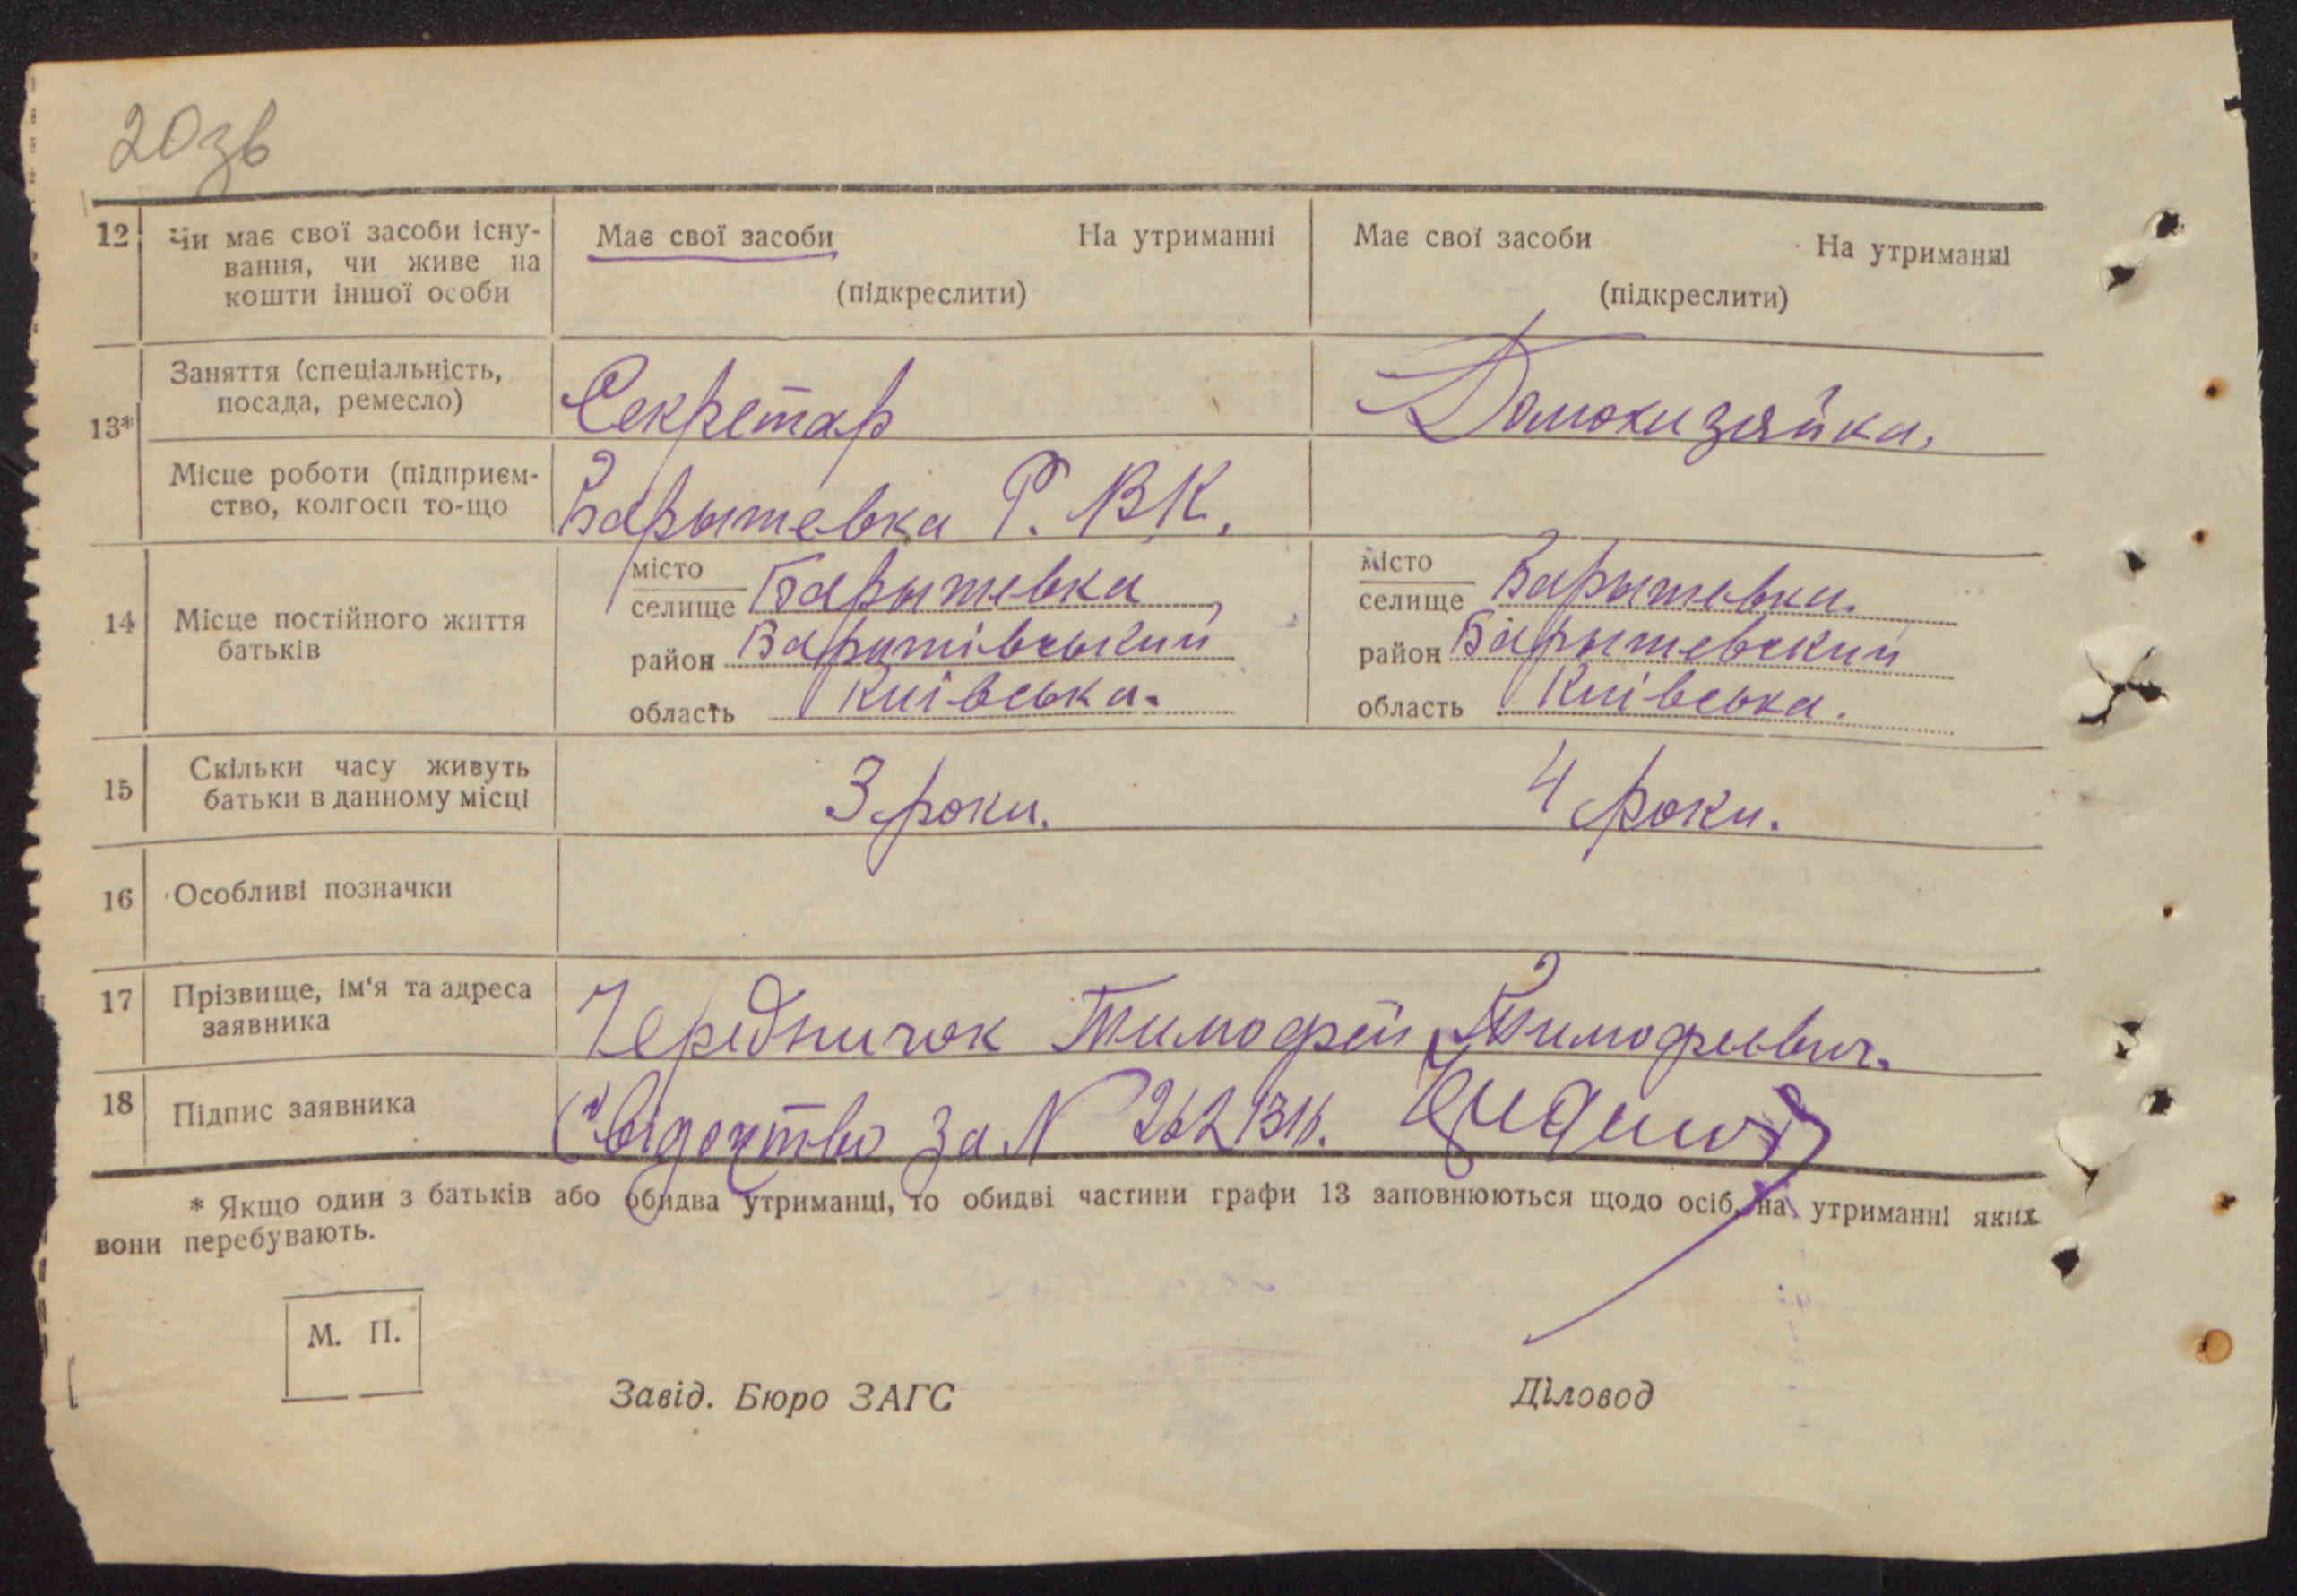 20зв
12 Чи має свої засоби існу-
вання, чи живе на
кошти іншої особи
Має свої засоби На утриманні
(підкреслити)
Має свої засоби На утриманні
(підкреслити)
13*
Заняття (спеціальність,
посада, ремесло)
Секретар
Домохизяйка.
Місце роботи (підприєм-
ство, колгосп то-що
Барышевка Р. ВК.
14 Місце постійного життя
батьків
місто
селище Барышевка
район Баришівський
область Київська.
місто
селище Барышевка.
район Барышевский
область Київська.
15 Скільки часу живуть
батьки в данному місці
3 роки.
4 роки.
16 Особливі позначки
17 Прізвище, ім'я та адреса
заявника
Чередничок Тимофей Тимофеевич.
18 Підпис заявника
Свідоцтво за N 262
* Якщо один з батьків або обидва утриманці, то обидві частини графи 13 заповнюються щодо осіб, на утриманні яких
вони перебувають.
М. П.
Завід. Бюро ЗАГС
Діловод